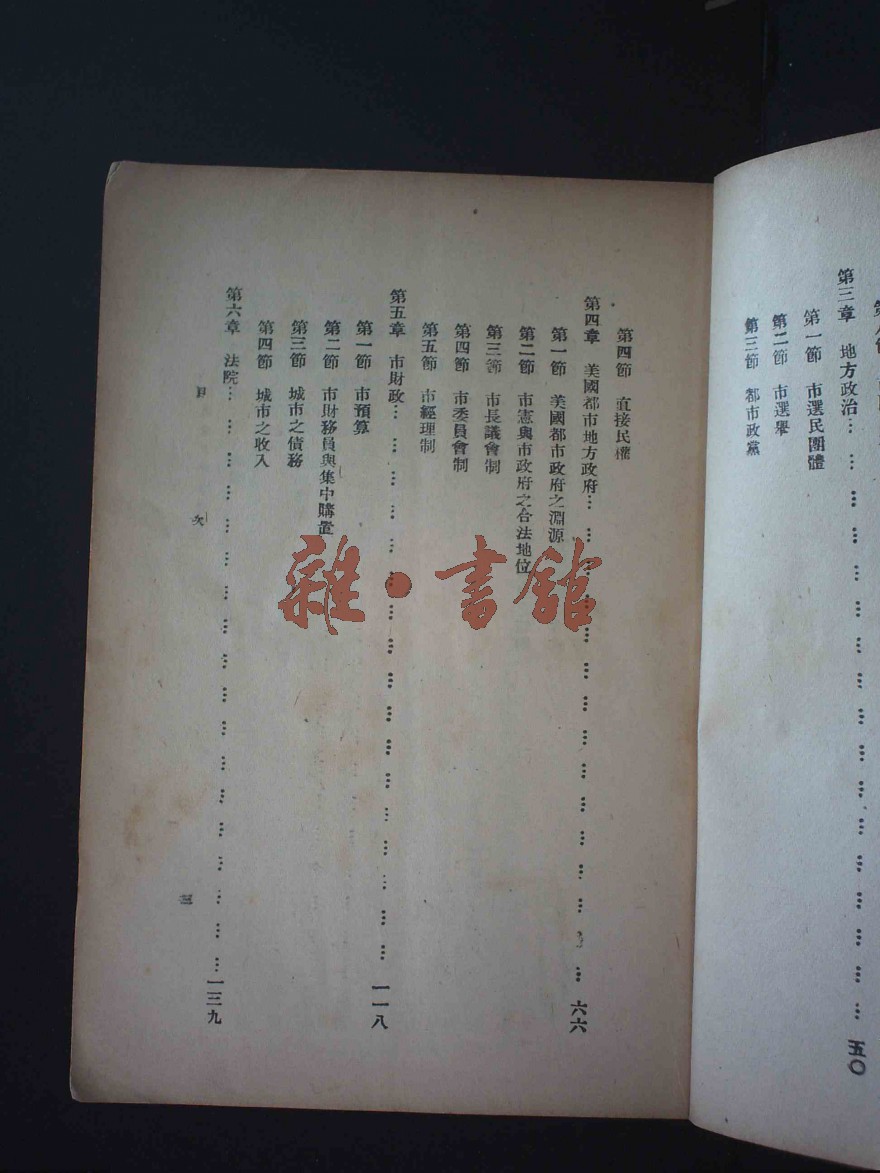 第三章　地方政治… … … … … … … … … … … … 五〇
第一節　市選民團體
第二節　市選舉
第三節　都市政黨
第四節　直接民權
第四章　美國都市地方政府… … … … … … … … … … 六六
第一節　美國都市政府之淵源
第二節　市憲與市政府之合法地位
第三節　市長議會制
第四節　市委員會制
第五節　市經理制
第五章　市財政… … … … … … … … … … … … 一一八
第一節　市預算
第二節　市財務員與集中購置
第三節　城市之債務
第四節　城市之收入
第六章　法院… … … … … … … … … … … … 一三九
目　次
三
雜·書館